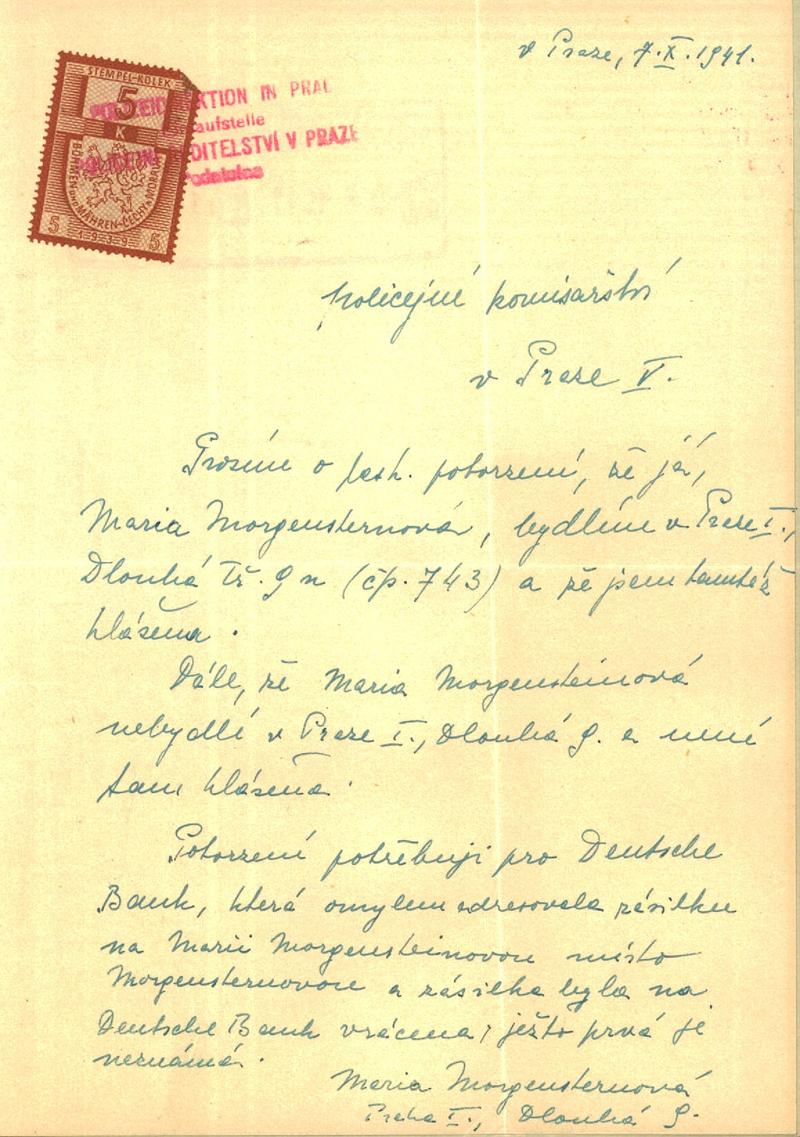 v Praze, 7.X.1941.
STEMPEL-KOLEK
5
K
BÖHMEN und MÄHREN-ČECHY a MORAVA
5 1939 5
POLIZEIDIREKTION IN PRAG
Verkaufstelle
POLICEJNÍ ŘEDITELSTVÍ V PRAZE
Podatelna
Policejné komisařství
v Praze V.
Prosím o potvrzení, že já,
Maria Morgensternová, bydlím v Praze I.,
Dlouhá tř. 9 n (čp. 743) a že jsem tamtéž
hlášena.
Dále, že Maria Morgensteinová
nebydlí v Praze I., Dlouhá 9. a není
tam hlášena.
Potvrzení potřebuji pro Deutsche
Bank, která omylem adresovala zásilku
na Marii Morgensteinovou místo
Morgensternovou a zásilka byla na
Deutsche Bank vrácena, ježto prvá je
neznámá.
Maria Morgensternová
Praha I., Dlouhá 9.